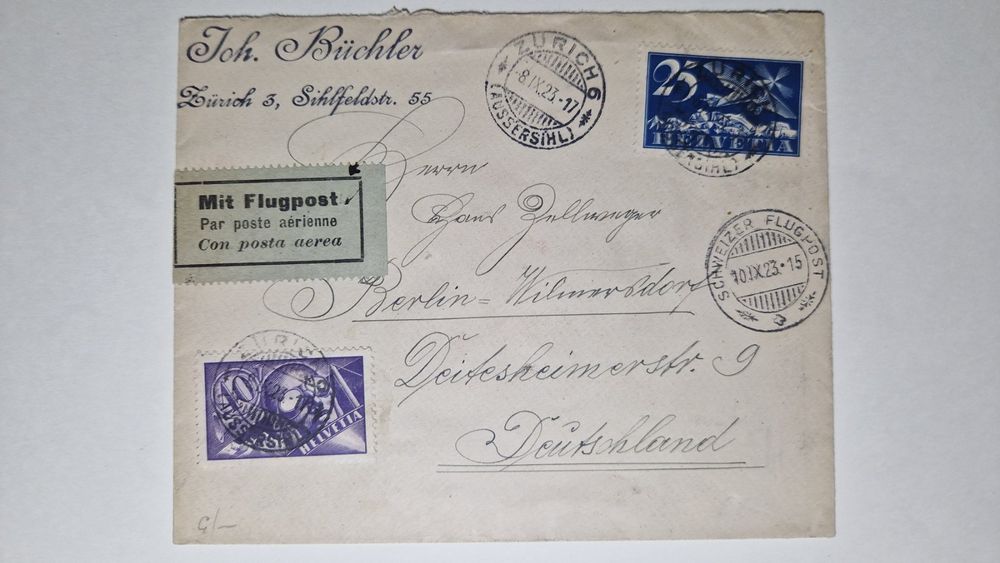 Joh. Büchler
Zürich 3, Sihlfeldstr. 55
ZÜRICH 6
-8.IX.23.-17
(AUSSERSIHL)
25
HELVETIA
Mit Flugpost
Par poste aérienne
Con posta aerea
Herrn
Hans Zellweger
Berlin=Wilmersdorf
Deitesheimerstr. 9
Deutschland
SCHWEIZER FLUGPOST
10.IX.23.-15
3
HELVETIA
G/-